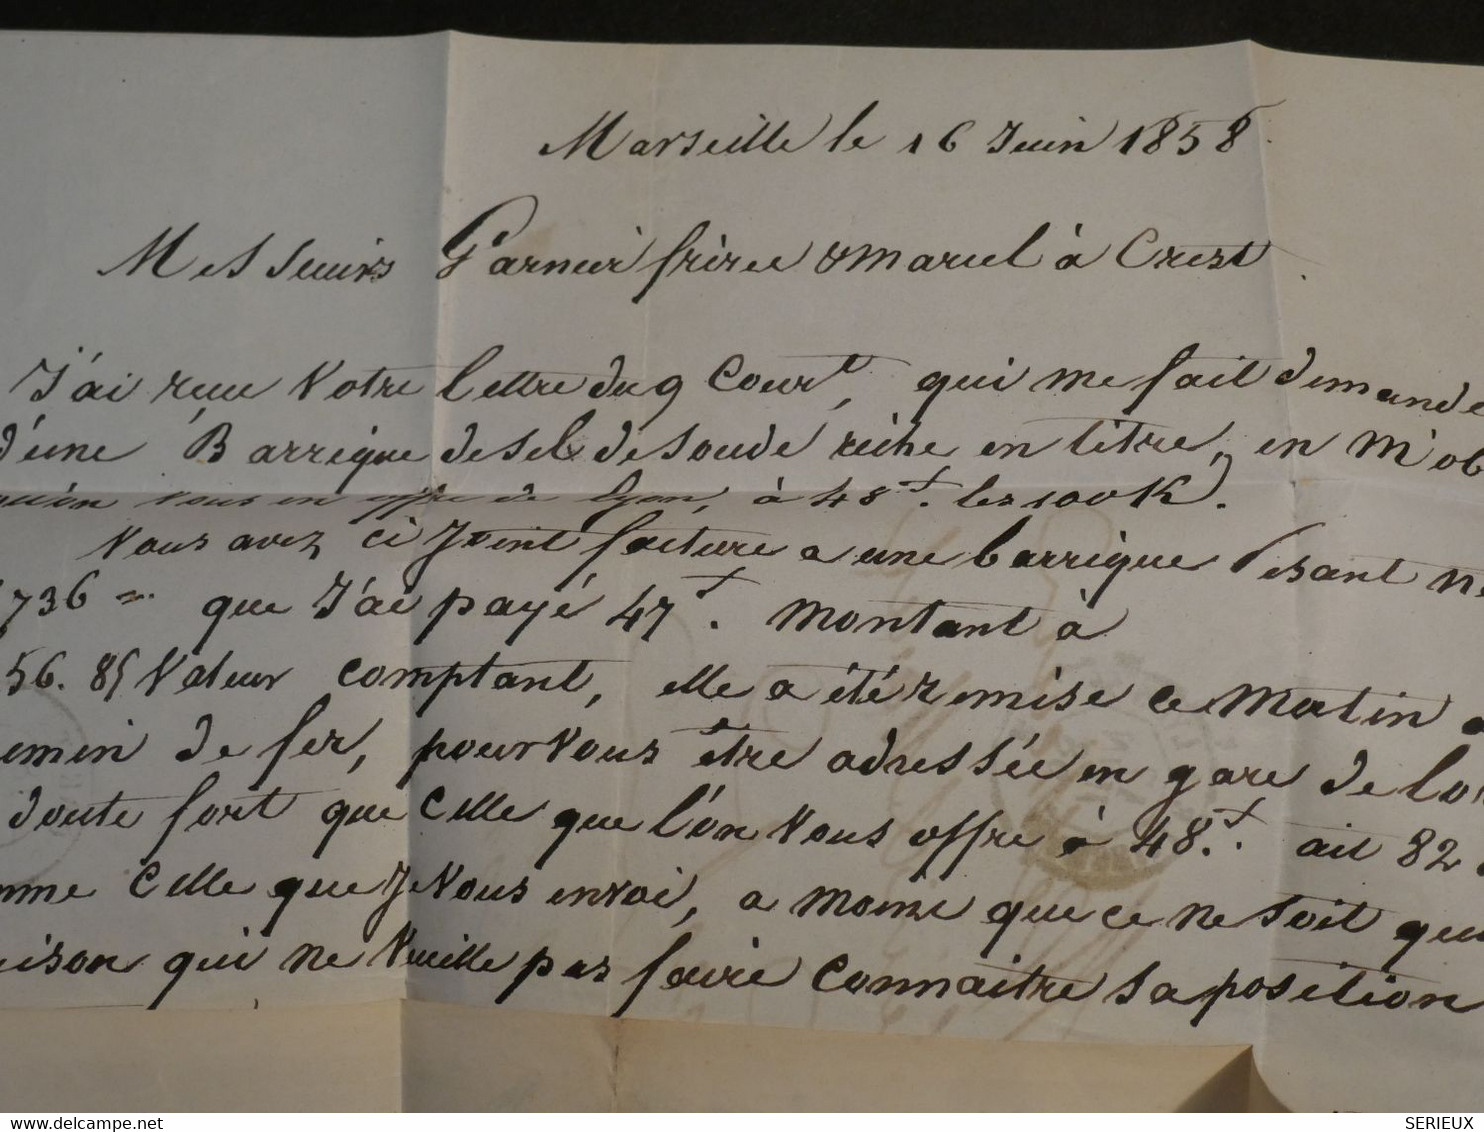 Marseille le 16 Juin 1858
Messieurs Garnier frères & Maruel à Crest
J'ai reçu Votre lettre du 9 Cour^t, qui me fait demande
d'une Barrique de sel de soude riche en titre, en m'ob
vous en offre de Lyon, à 48 f. les 100 K.
Vous avez ci Joint facture a une barrique Pesant ne
736 que J'ai payé 47 f. Montant à
56. 85 Valeur comptant, elle a été remise ce Matin a
emin de fer, pour Vous être adressée en gare de
doute fort que Celle que l'on Vous offre à 48 f. ait 82
mme Celle que Je Vous envoi, a moins que ce ne Soit que
aison qui ne Veuille pas faire Connaitre sa position
delcampe.net
SERIEUX